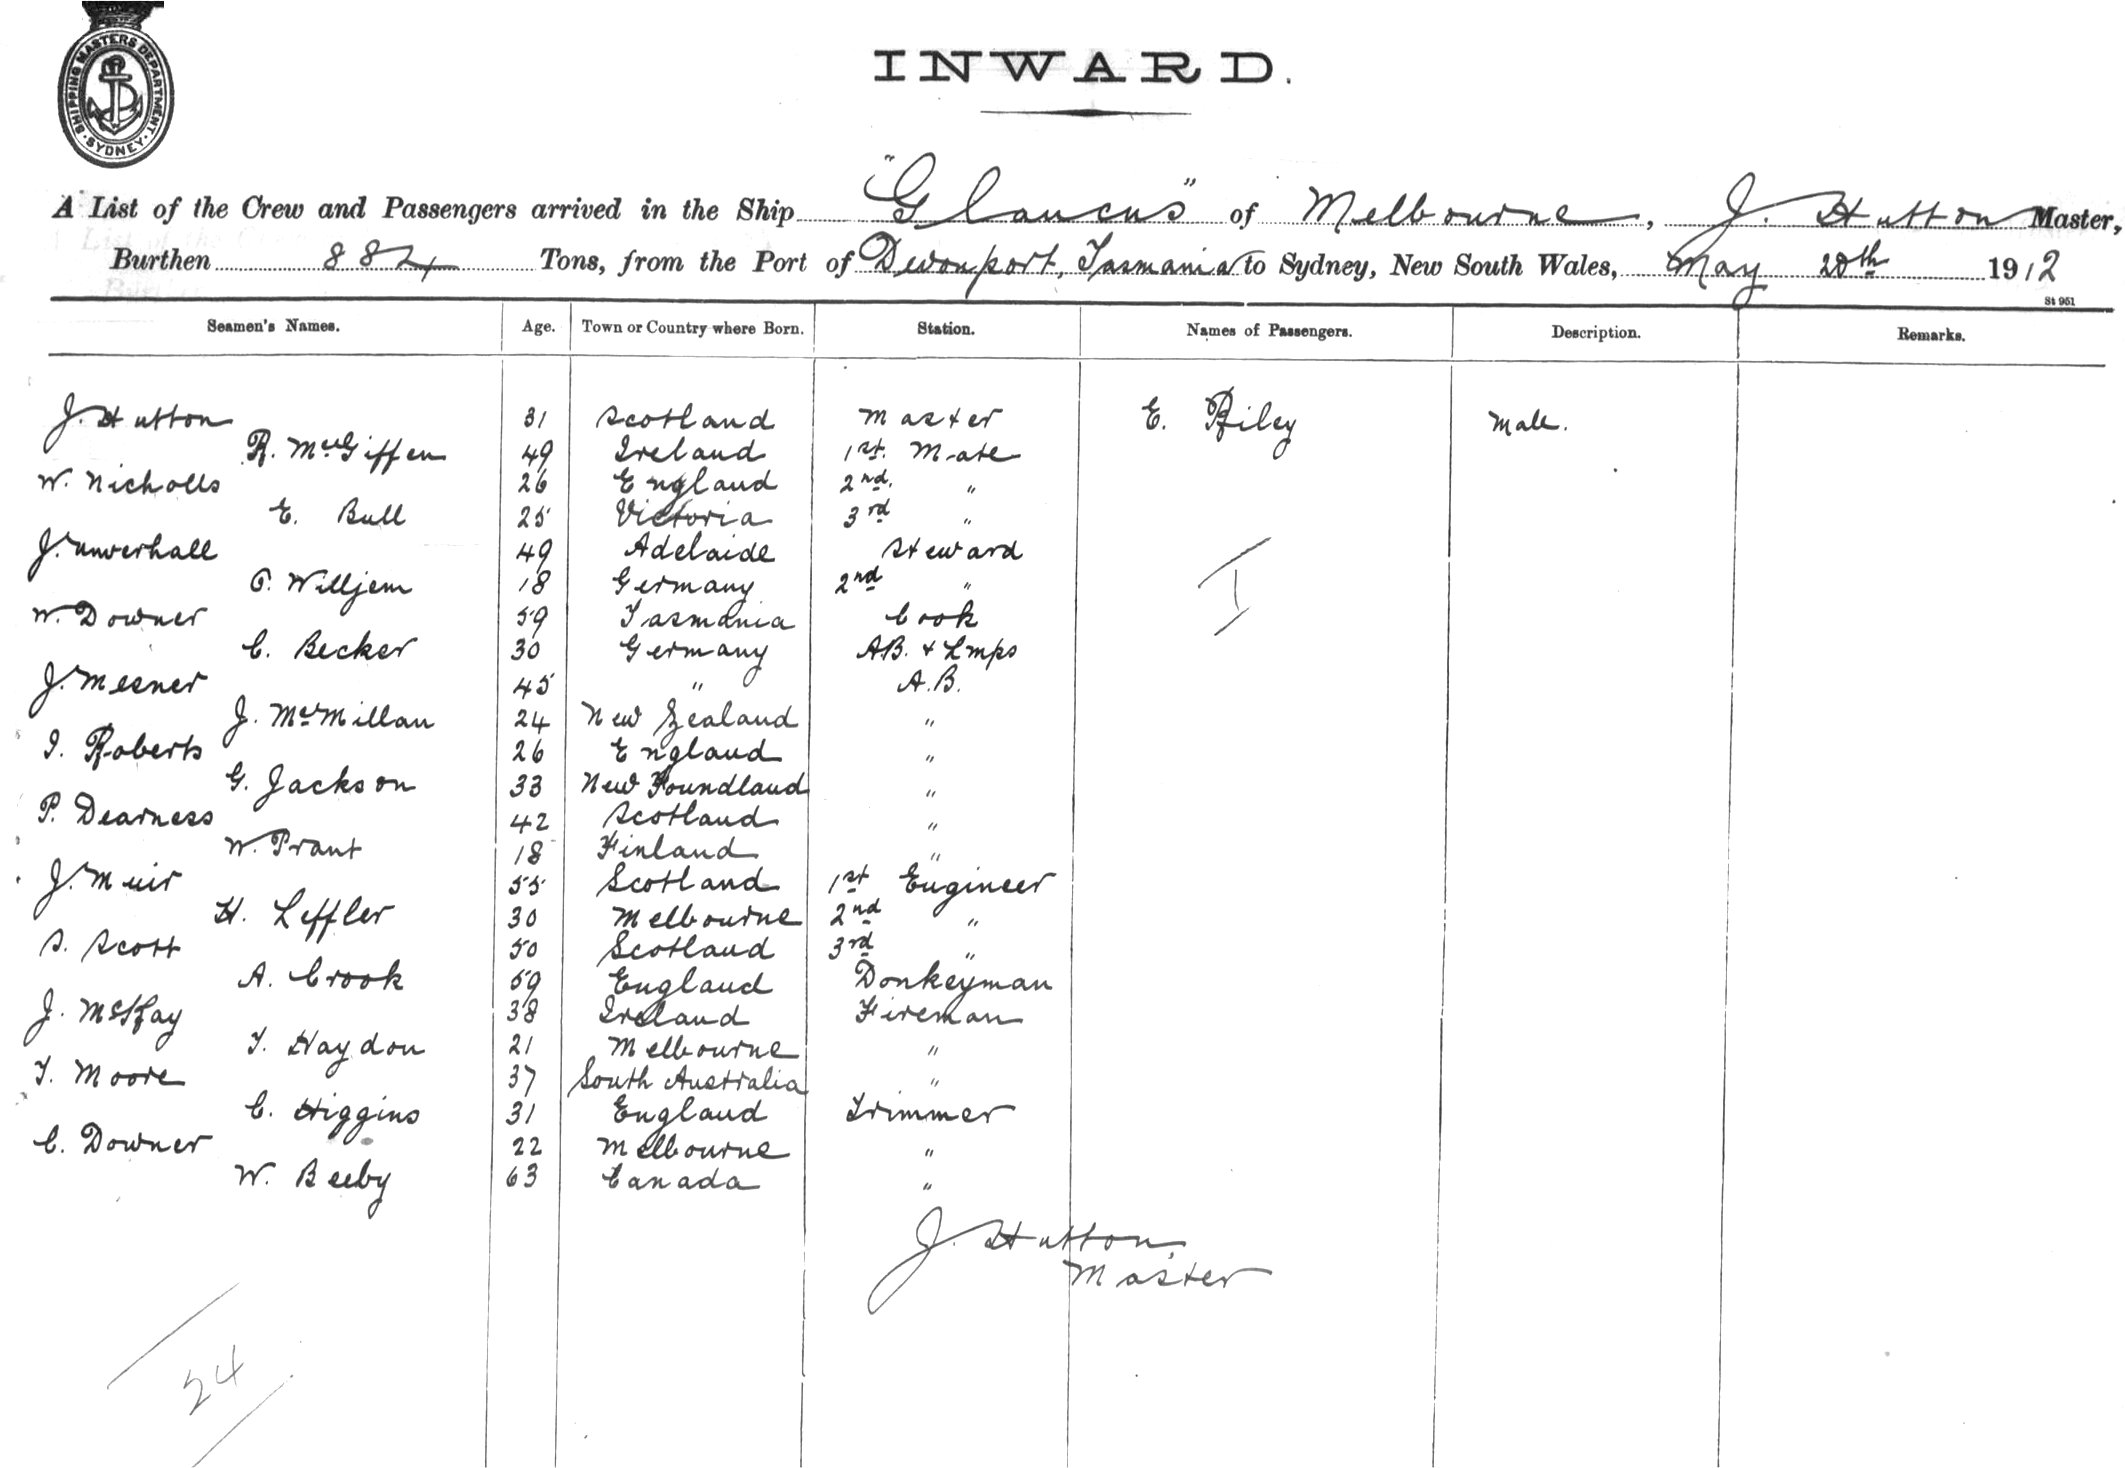 SHIPPING MASTERS DEPARTMENT · SYDNEY ·
INWARD.
A List of the Crew and Passengers arrived in the Ship "Glaucus" of Melbourne, J. Hutton Master,
Burthen 882 Tons, from the Port of Devonport, Tasmania to Sydney, New South Wales, May 20th 1912
St 951
Seamen's Names. Age. Town or Country where Born. Station. Names of Passengers. Description. Remarks.
J. Hutton 31 Scotland Master E. Riley Male.
R. McGiffen 49 Ireland 1st. Mate
W. Nicholls 26 England 2nd. "
E. Bull 25 Victoria 3rd "
J. 49 Adelaide Steward
Willjem 18 Germany 2nd "
W. Downer 59 Tasmania Cook
C. Becker 30 Germany AB. & Lmps
J. Mesner 45 " A.B.
J. McMillan 24 New Zealand "
I. Roberts 26 England "
G. Jackson 33 New Foundland "
P. Dearness 42 Scotland "
W. Prant 18 Finland "
J. Muir 55 Scotland 1st Engineer
H. Leffler 30 Melbourne 2nd "
S. Scott 50 Scotland 3rd "
A. Crook 59 England Donkeyman
J. McKay 38 Ireland Fireman
T. Haydon 21 Melbourne "
T. Moore 37 South Australia "
C. Higgins 31 England Trimmer
C. Downer 22 Melbourne "
W. Beeby 63 Canada "
J. Hutton,
Master
I
24